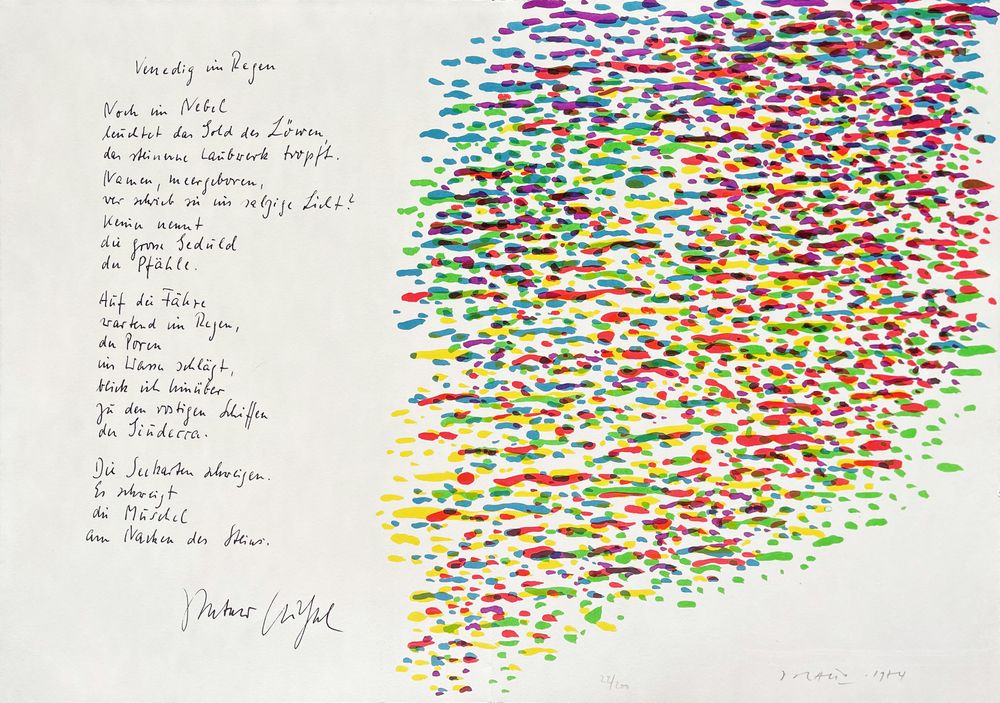 Venedig im Regen
Noch im Nebel
leuchtet das Gold des Löwen,
das steinerne Laubwerk tropft.
Namen, meergeboren,
wer schrieb sie ins salzige Licht?
Keiner nennt
die grosse Geduld
der Pfähle.
Auf die Fähre
wartend im Regen,
der Poren
ins Wasser schlägt,
blick ich hinüber
zu den rostigen Schiffen
der Giudecca.
Die Seekarten schweigen.
Es schweigt
die Muschel
am Nacken des Steins.
22/200